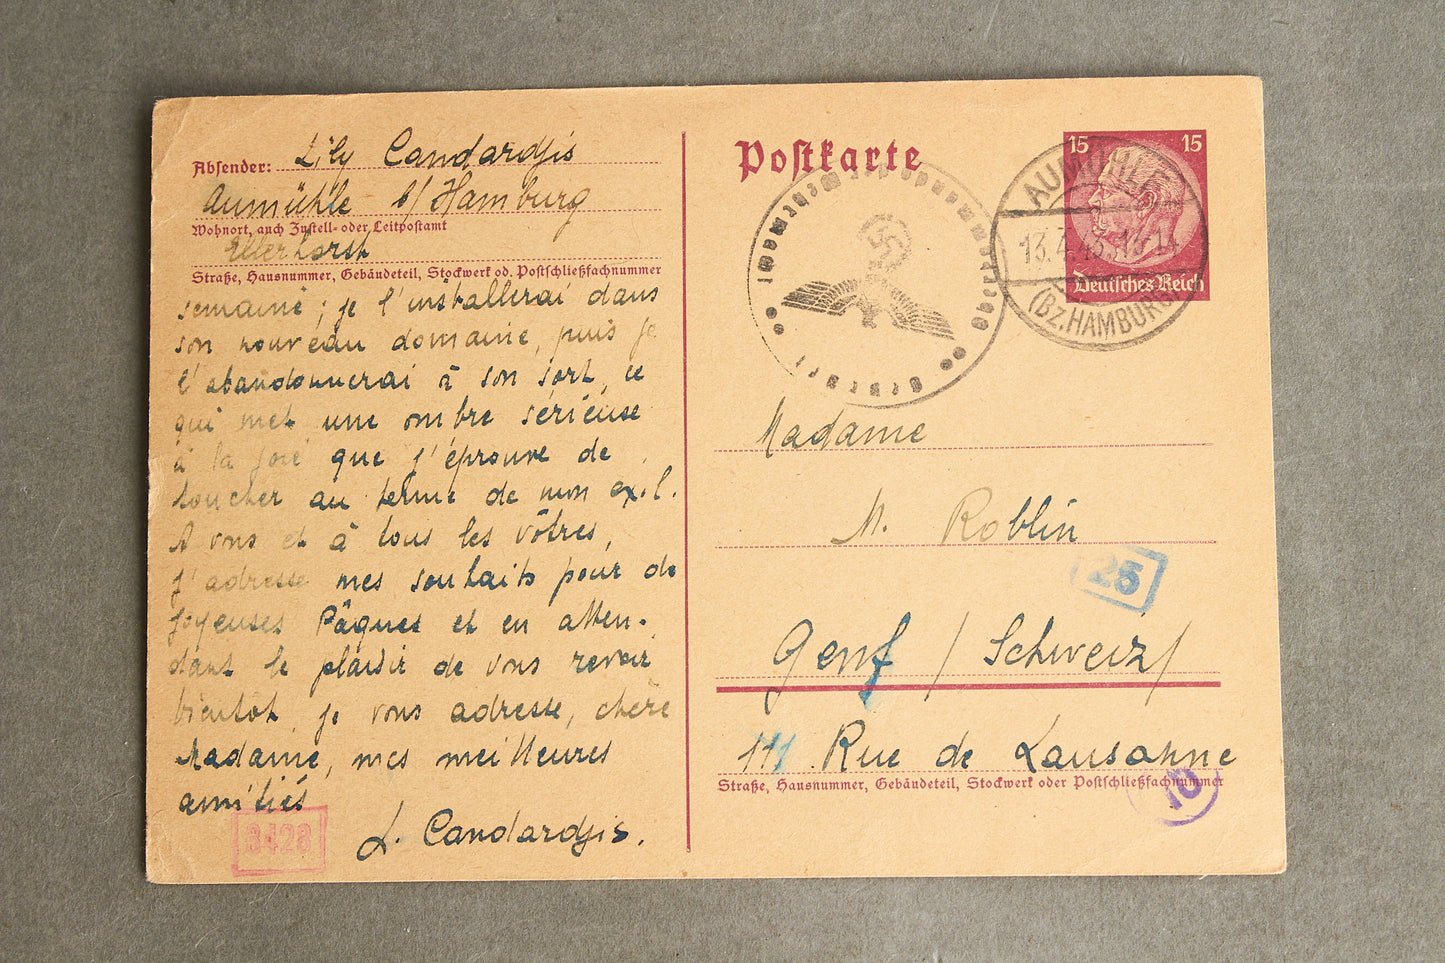 Absender: Lily Candardjis
Aumühle b/Hamburg
Wohnort, auch Zustell- oder Leitpostamt
Ellerhorst
Straße, Hausnummer, Gebäudeteil, Stockwerk od. Postschließfachnummer
semaine ; je l'installerai dans
son nouveau domaine, puis je
l'abandonnerai à son sort, ce
qui met une ombre sérieuse
à la joie que j'éprouve de
toucher au terme de mon exil.
A vous et à tous les vôtres,
j'adresse mes souhaits pour de
joyeuses Pâques et en atten-
dant le plaisir de vous revoir
bientôt, je vous adresse, chère
Madame, mes meilleures
amitiés
L. Candardjis.
3428
Postkarte
15 15
Deutsches Reich
AUMÜHLE
13.4.43.13-14
(BZ. HAMBURG)
Oberkommando der Wehrmacht
Geprüft
Madame
M. Roblin
25
Genf / Schweiz /
111 Rue de Lausanne
Straße, Hausnummer, Gebäudeteil, Stockwerk oder Postschließfachnummer